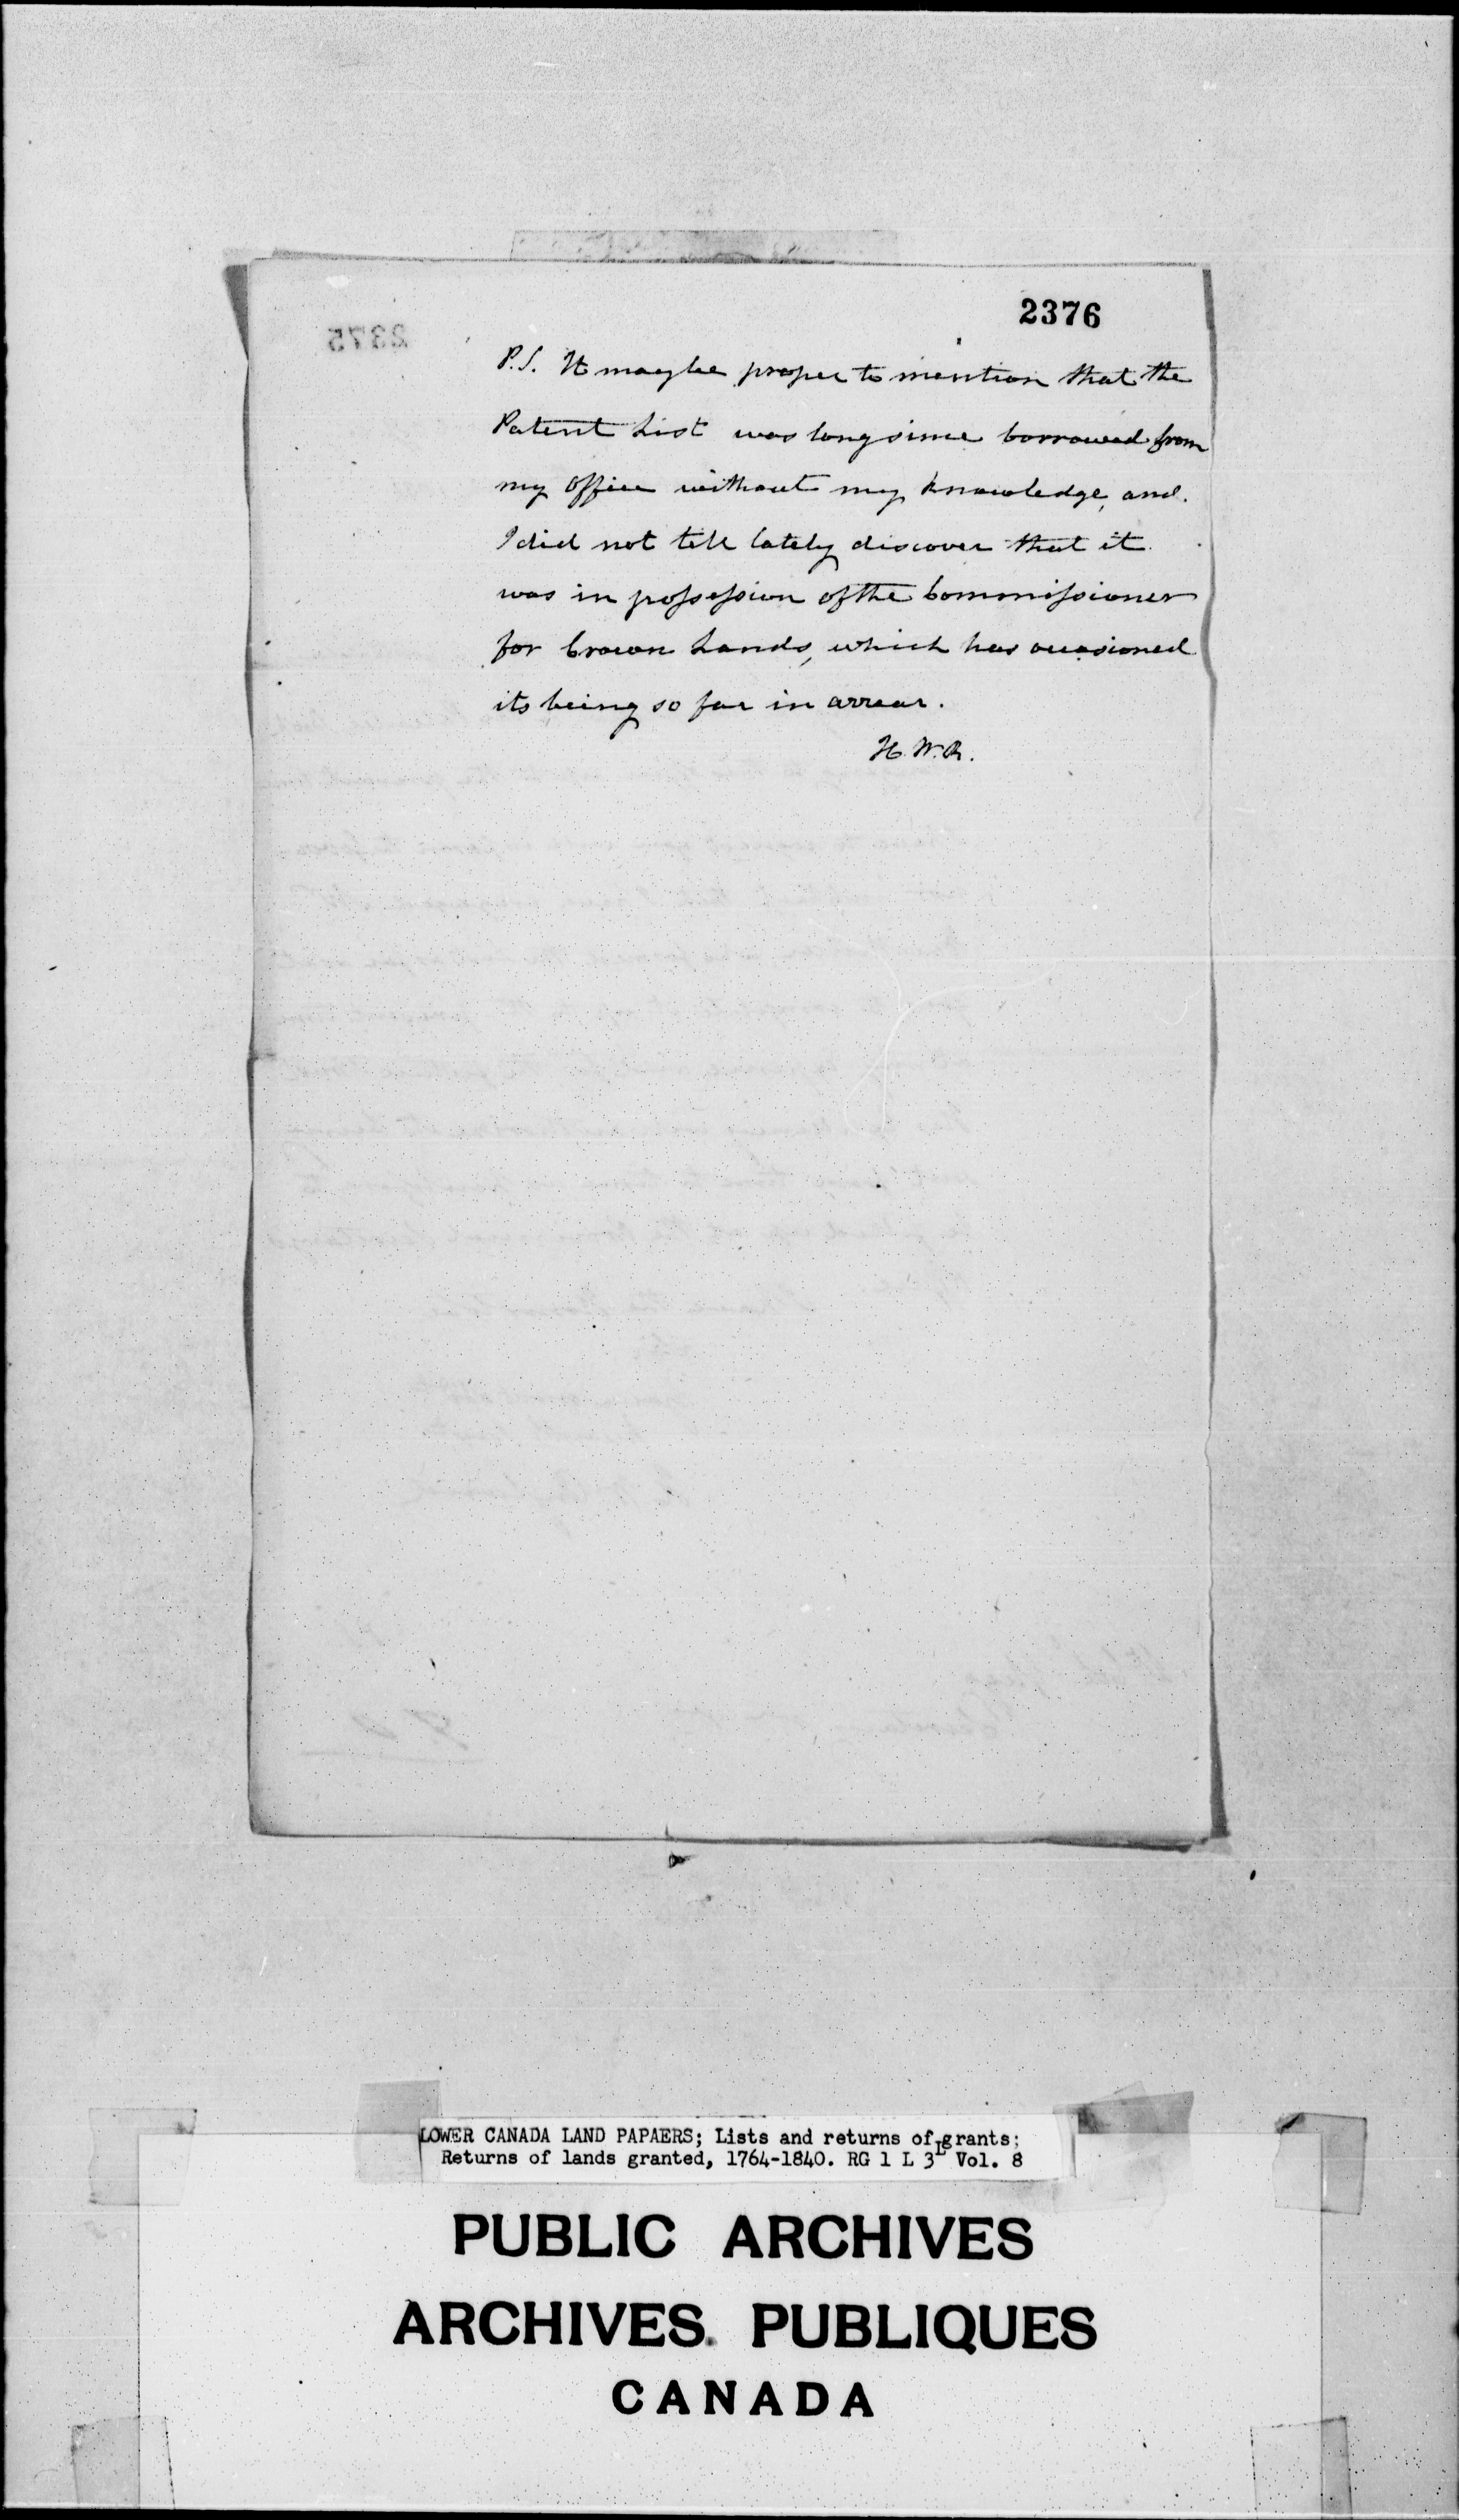 2376
2375
P.S. It may be proper to mention that the
Patent List was long since borrowed from
my Office without my knowledge, and
I did not till lately discover that it
was in possession of the Commissioner
for Crown Lands, which has occasioned
its being so far in arrear.
H. W. R.
LOWER CANADA LAND PAPAERS; Lists and returns of grants;
Returns of lands granted, 1764-1840. RG 1 L 3L Vol. 8
PUBLIC ARCHIVES
ARCHIVES PUBLIQUES
CANADA